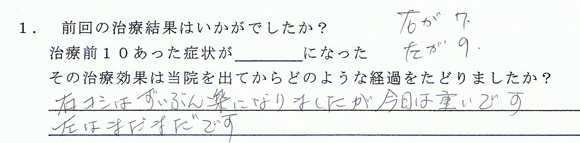 1． 前回の治療結果はいかがでしたか？
右が 7.
治療前１０あった症状が＿＿＿＿になった
左が 9.
その治療効果は当院を出てからどのような経過をたどりましたか？
右コシはずいぶん楽になりましたが今日は重いです
左はまだまだです